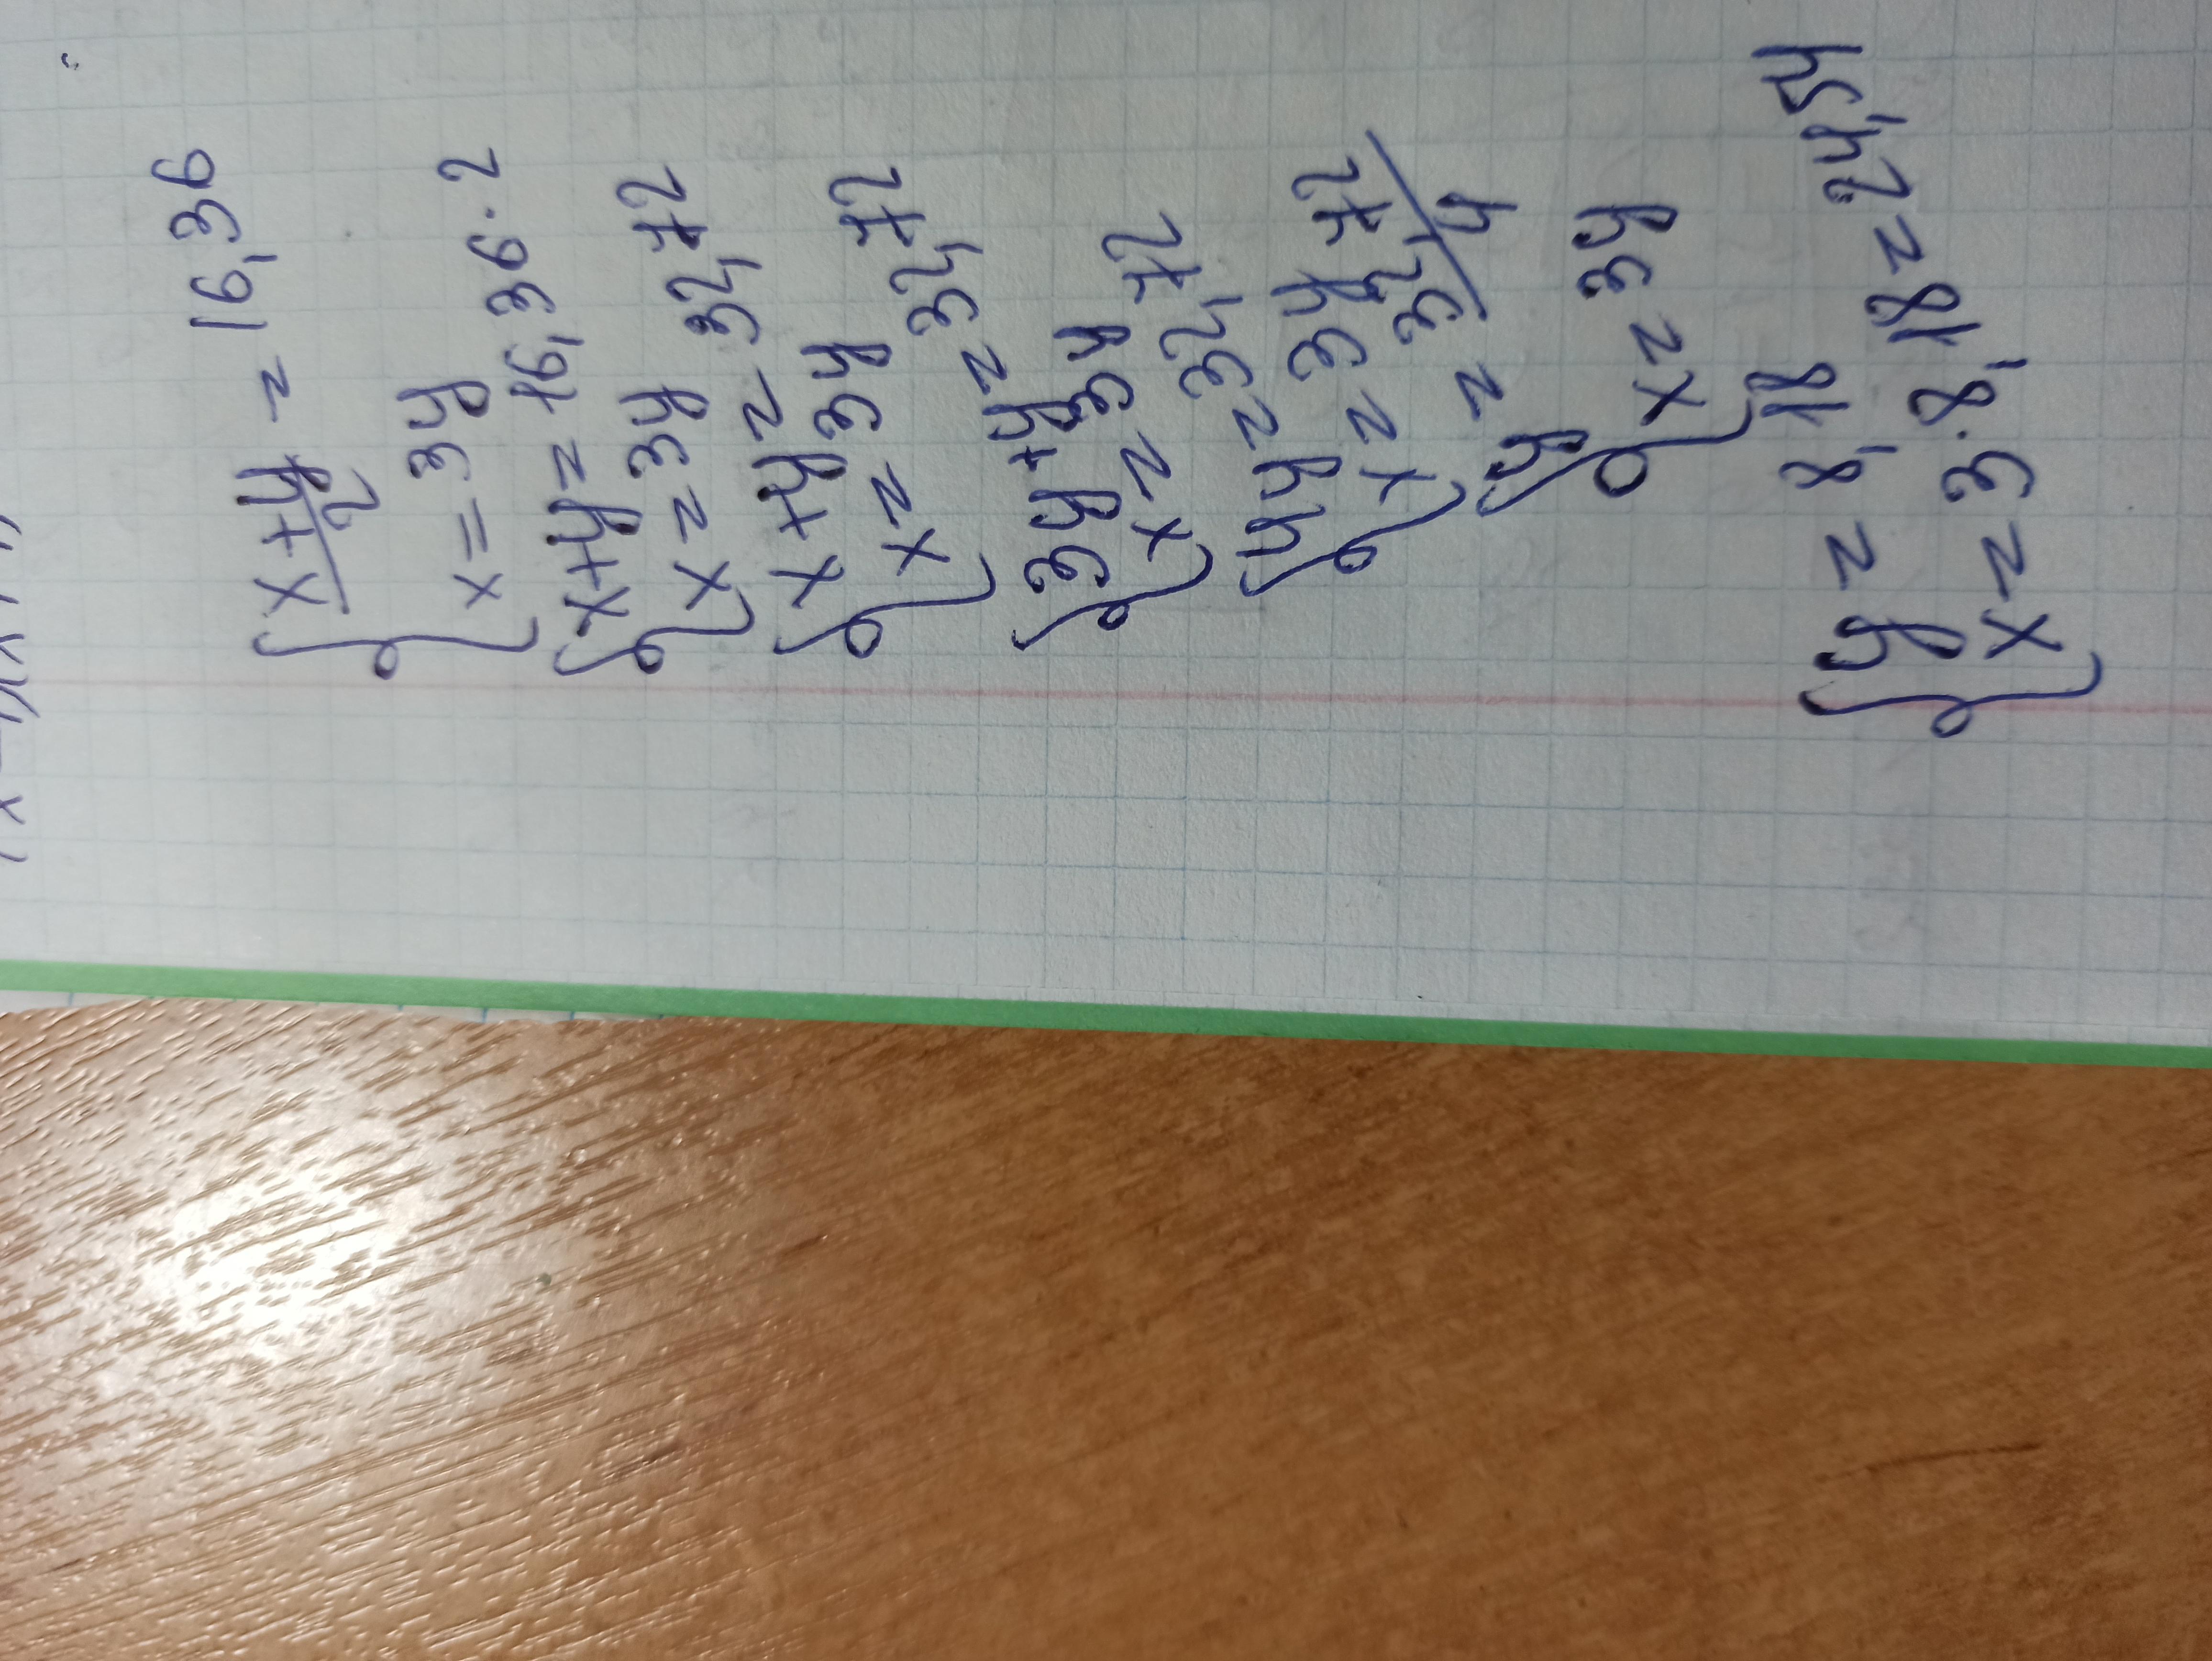 { x+y/2 = 16,36
x = 3y
{ x+y = 16,36·2
x = 3y
{ x+y = 32,72
x = 3y
{ 3y+y = 32,72
x = 3y
{ 4y = 32,72
x = 3y
{ y = 32,72/4
x = 3y
{ y = 8,18
x = 3·8,18 = 24,54